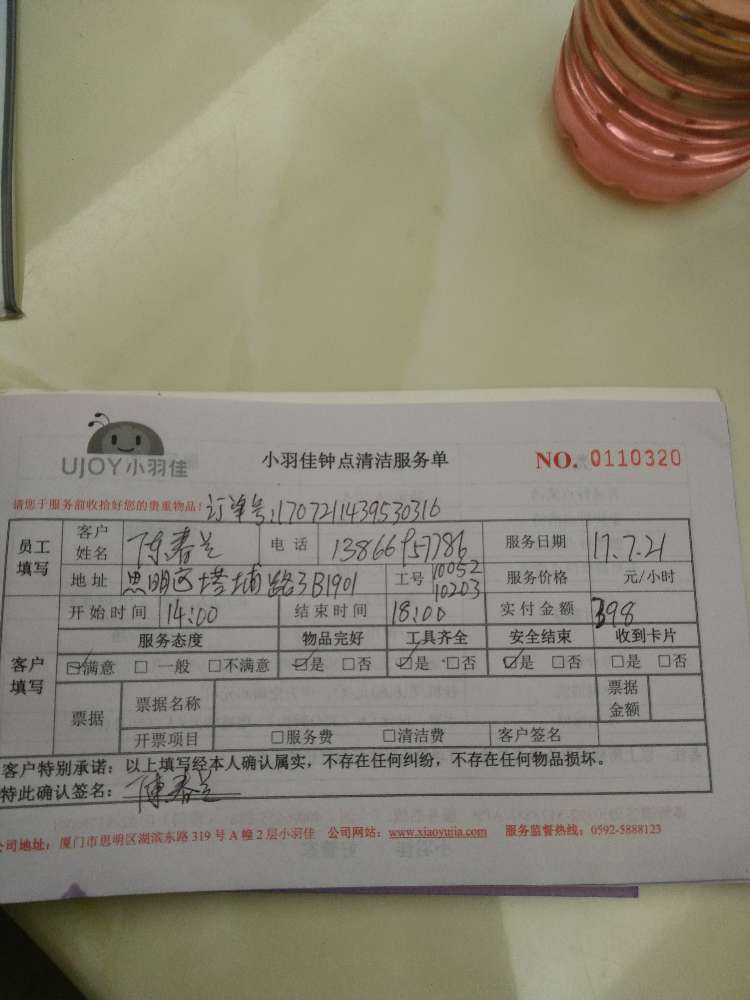 UJOY小羽佳 小羽佳钟点清洁服务单 NO. 0110320
请您于服务前收拾好您的贵重物品! 订单号:1707211439530316
员工填写 客户姓名 陈春兰 电话 13866957786 服务日期 17.7.21
地址 思明区塔埔路3B1901 工号 10052 10203 服务价格 元/小时
客户填写 开始时间 14:00 结束时间 18:00 实付金额 398
服务态度 物品完好 工具齐全 安全结束 收到卡片
☑满意 □一般 □不满意 ☑是 □否 ☑是 □否 ☑是 □否 □是 □否
票据 票据名称 票据金额
开票项目 □服务费 □清洁费 客户签名
客户特别承诺：以上填写经本人确认属实，不存在任何纠纷，不存在任何物品损坏。
特此确认签名：陈春兰
公司地址：厦门市思明区湖滨东路319号A幢2层小羽佳 公司网站：www.xiaoyujia.com 服务监督热线：0592-5888123